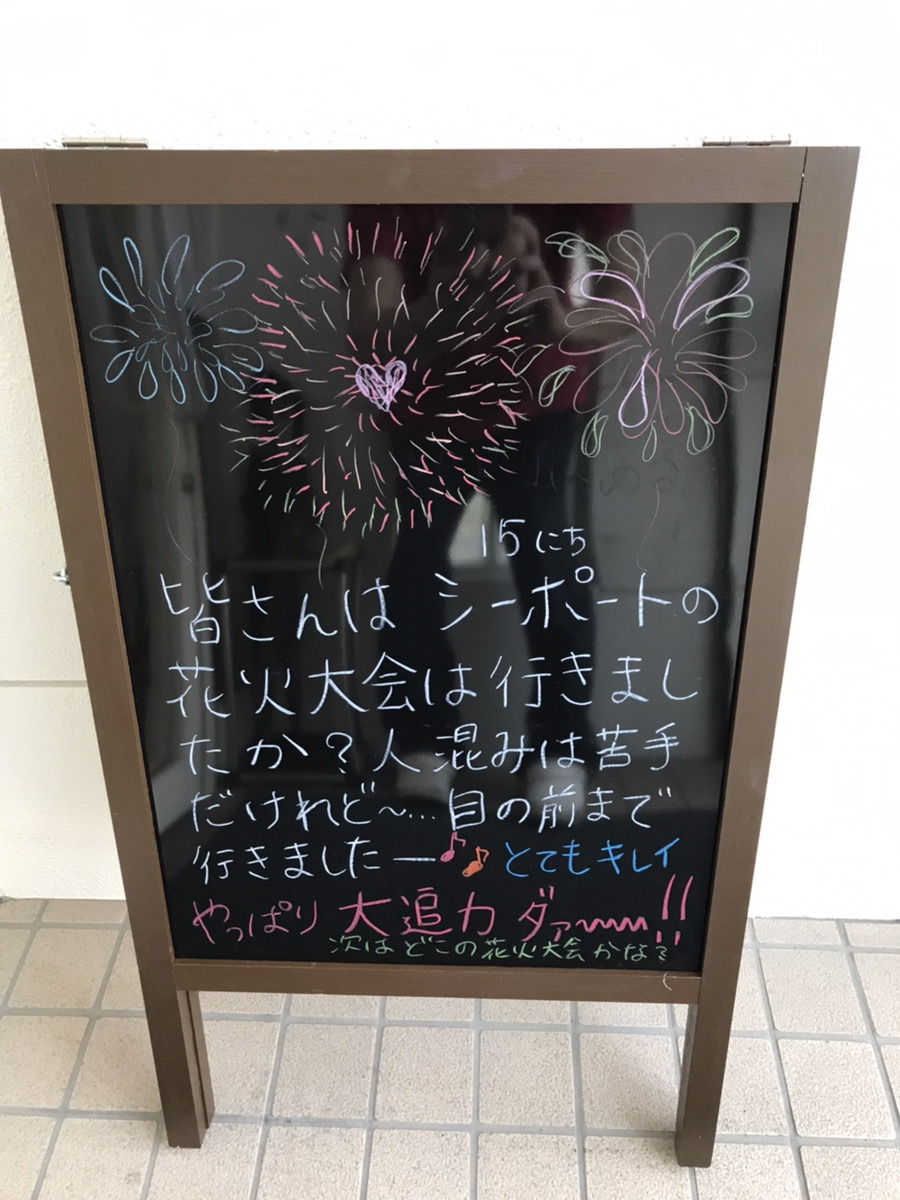 15にち
皆さんは シーポートの
花火大会は行きまし
たか？人混みは苦手
だけれど〜…目の前まで
行きましたー♪♪とてもキレイ
やっぱり 大追力 ダァ〜〜!!
次はどこの花火大会かな？